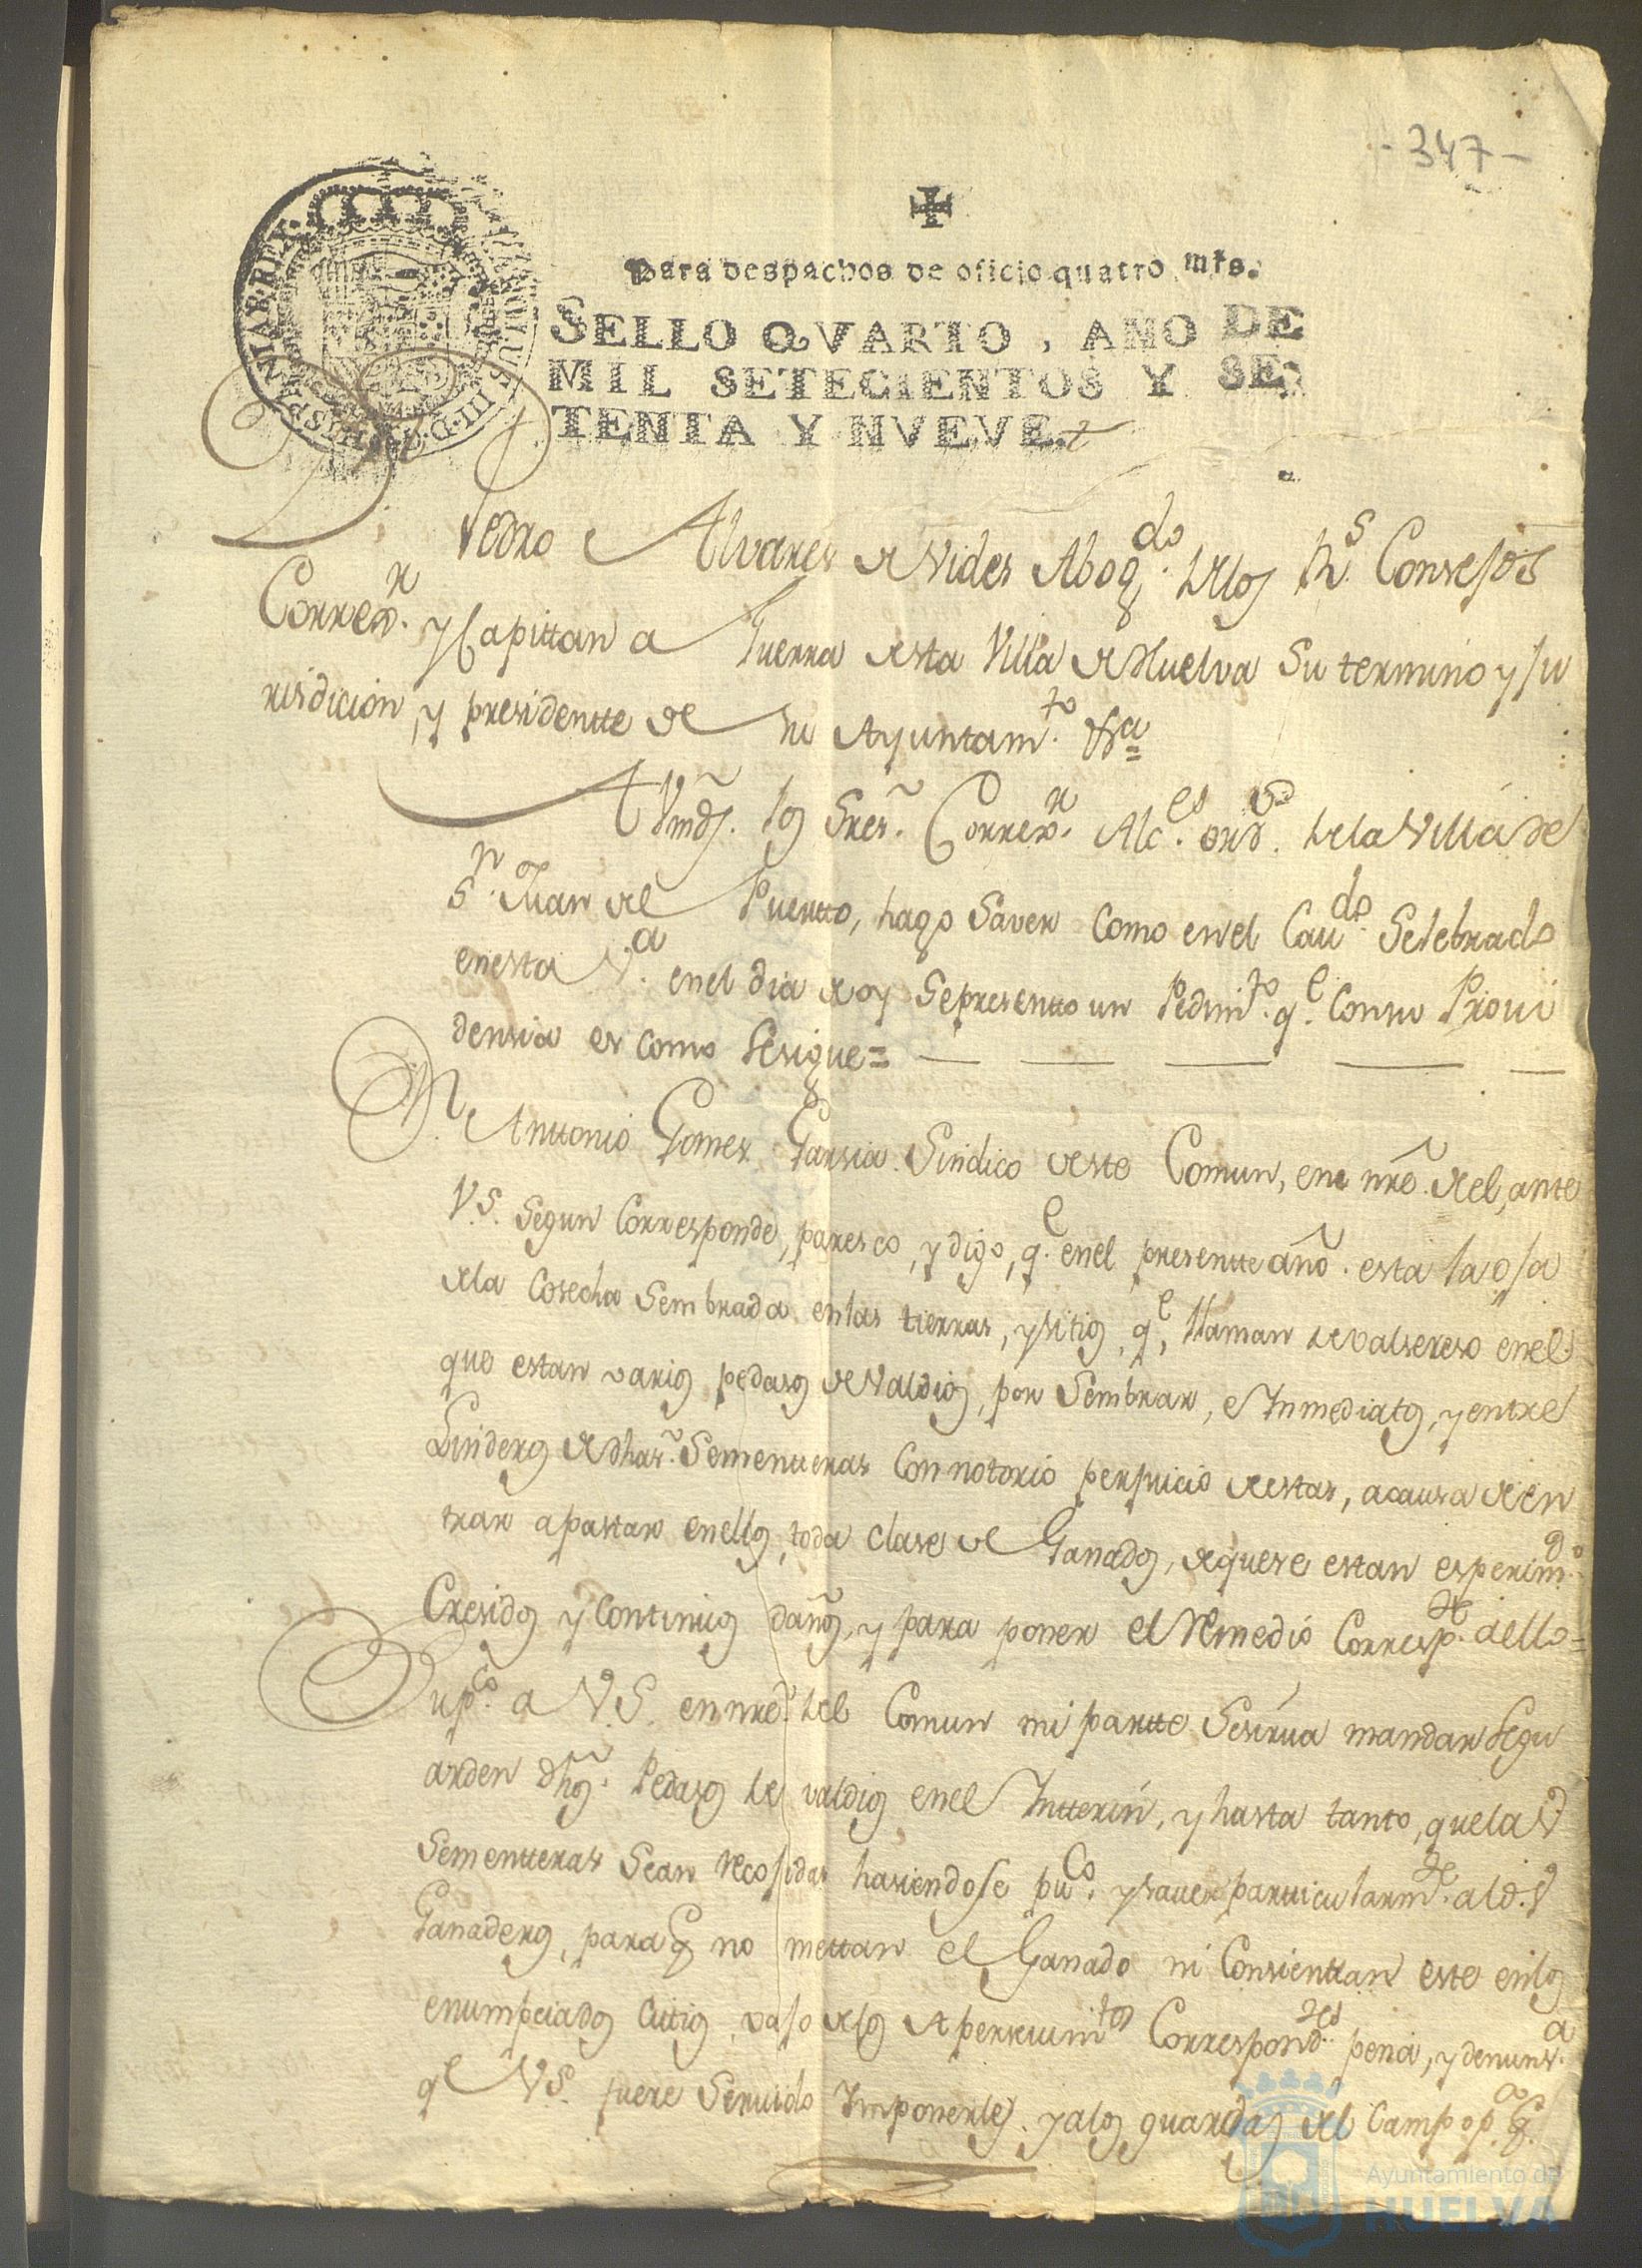 -347-
Para despachos de oficio quatro mrs.
SELLO QVARTO, AÑO DE
MIL SETECIENTOS Y SE-
TENTA Y NVEVE.
CAROLUS III D. G. HISPANIAR. REX
Dn. Pedro Alvares de Vides Abogdo. de los Rs. Consejos
Correxr. y Capittan a Guerra desta Villa de Huelva su termino y Ju
risdicion, y presidentte de su Ayuntamto. &a =
A Vmds. los Sres. Correxr. Alces. ords. de la Villa de
Sn. Juan del Puertto, hago Saver como en el Cavdo. Selebrado
en esta Va. en el dia de oy se presentto un Pedimto. qe. con su Provi
densia es como se sigue =
Dn. Anttonio Gomes Garsia Sindico deste Comun, en nre. del, ante
V.S. segun corresponde, paresco, y digo, qe. en el presentte año esta la oja
de la cosecha sembrada en las tierras, y sitios, qe. llaman de valsereso en el
que estan varios pedasos de valdios, por sembrar, e Inmediatos, y entre
Linderos de dhas. Sementteras con notorio perjuicio de estas, a causa de en
trar a pastar en ellos, toda clase de Ganados, de que se estan esperimdo.
Cresidos y continuos daños, y para poner el remedio correspte. a ello =
Supco. a V.S. en nre. del Comun mi partte se sirva mandar se gu
arden dhos. Pedasos de valdios en el Intterin, y hasta tanto, que las
Sementteras sean recojidas hasiendose puco. y saver partticularmte. a los
Ganaderos, para q no mettan el Ganado ni consienttan este en los
enumpciados Citios, vajo de los Apersivimtos. Correspondtes. pena, y denunsa.
qe. V.S. fuere servido Imponerles. y a los guardas del campo pa. q.
Ayuntamiento de
HUELVA